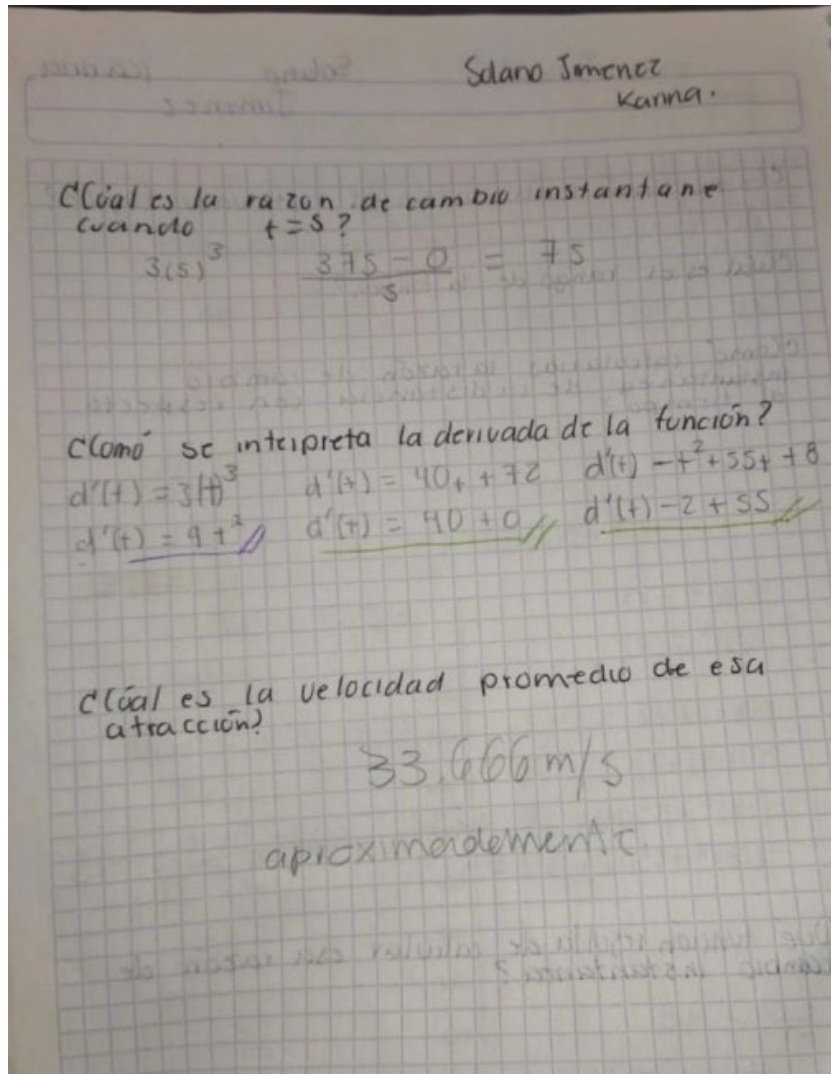 Solano Jimenez
Karina.
¿Cúal es la razon de cambio instantane
cuando t = 5?
3(5)³ 375 - 0 / 5 = 75
¿Comó se interpreta la derivada de la función?
d'(t) = 3(t)³ d'(t) = 40t + 72 d'(t) - t² + 55t + 8
d'(t) = 9t² d'(t) = 40 + 0 d'(t) - 2 + 55
¿Cúal es la velocidad promedio de esa
atracción?
33.666 m/s
aproximadamente